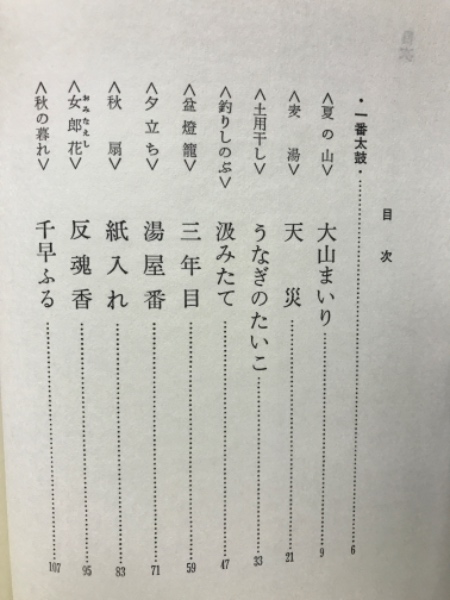 目次
・一番太鼓・ 6
〈夏の山〉 大山まいり 9
〈麦湯〉 天災 21
〈土用干し〉 うなぎのたいこ 33
〈釣りしのぶ〉 汲みたて 47
〈盆燈籠〉 三年目 59
〈夕立ち〉 湯屋番 71
〈秋扇〉 紙入れ 83
〈女郎花〉 おみなえし 反魂香 95
〈秋の暮れ〉 千早ふる 107